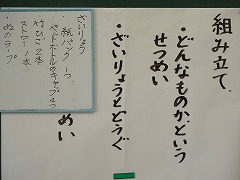 組み立て
・どんなものかという
せつめい
・ざいりょうとどうぐ
めい
ざいりょう
・紙パック 一つ
ペットボトルのキャップ4つ
竹ひご2本
ストロー1本
・ぬのテープ